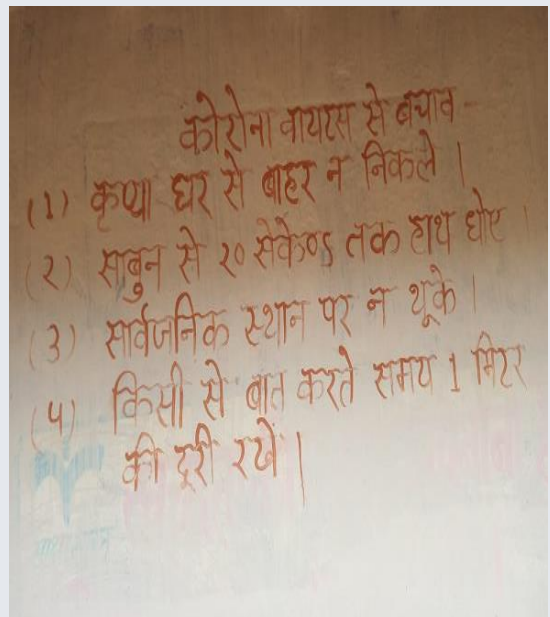 कोरोना वायरस से बचाव -
(1) कृप्या घर से बाहर न निकले ।
(२) साबुन से २० सेकेण्ड तक हाथ धोए ।
(3) सार्वजनिक स्थान पर न थूके ।
(५) किसी से बात करते समय 1 मिटर
की दूरी रखें ।